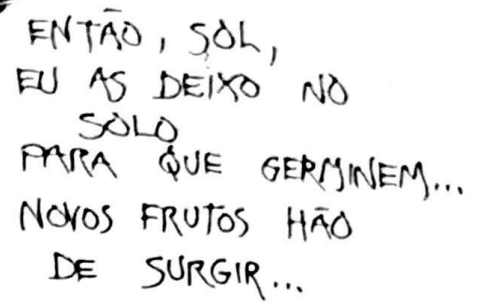 ENTÃO, SOL,
EU AS DEIXO NO
SOLO
PARA QUE GERMINEM...
NOVOS FRUTOS HÃO
DE SURGIR...